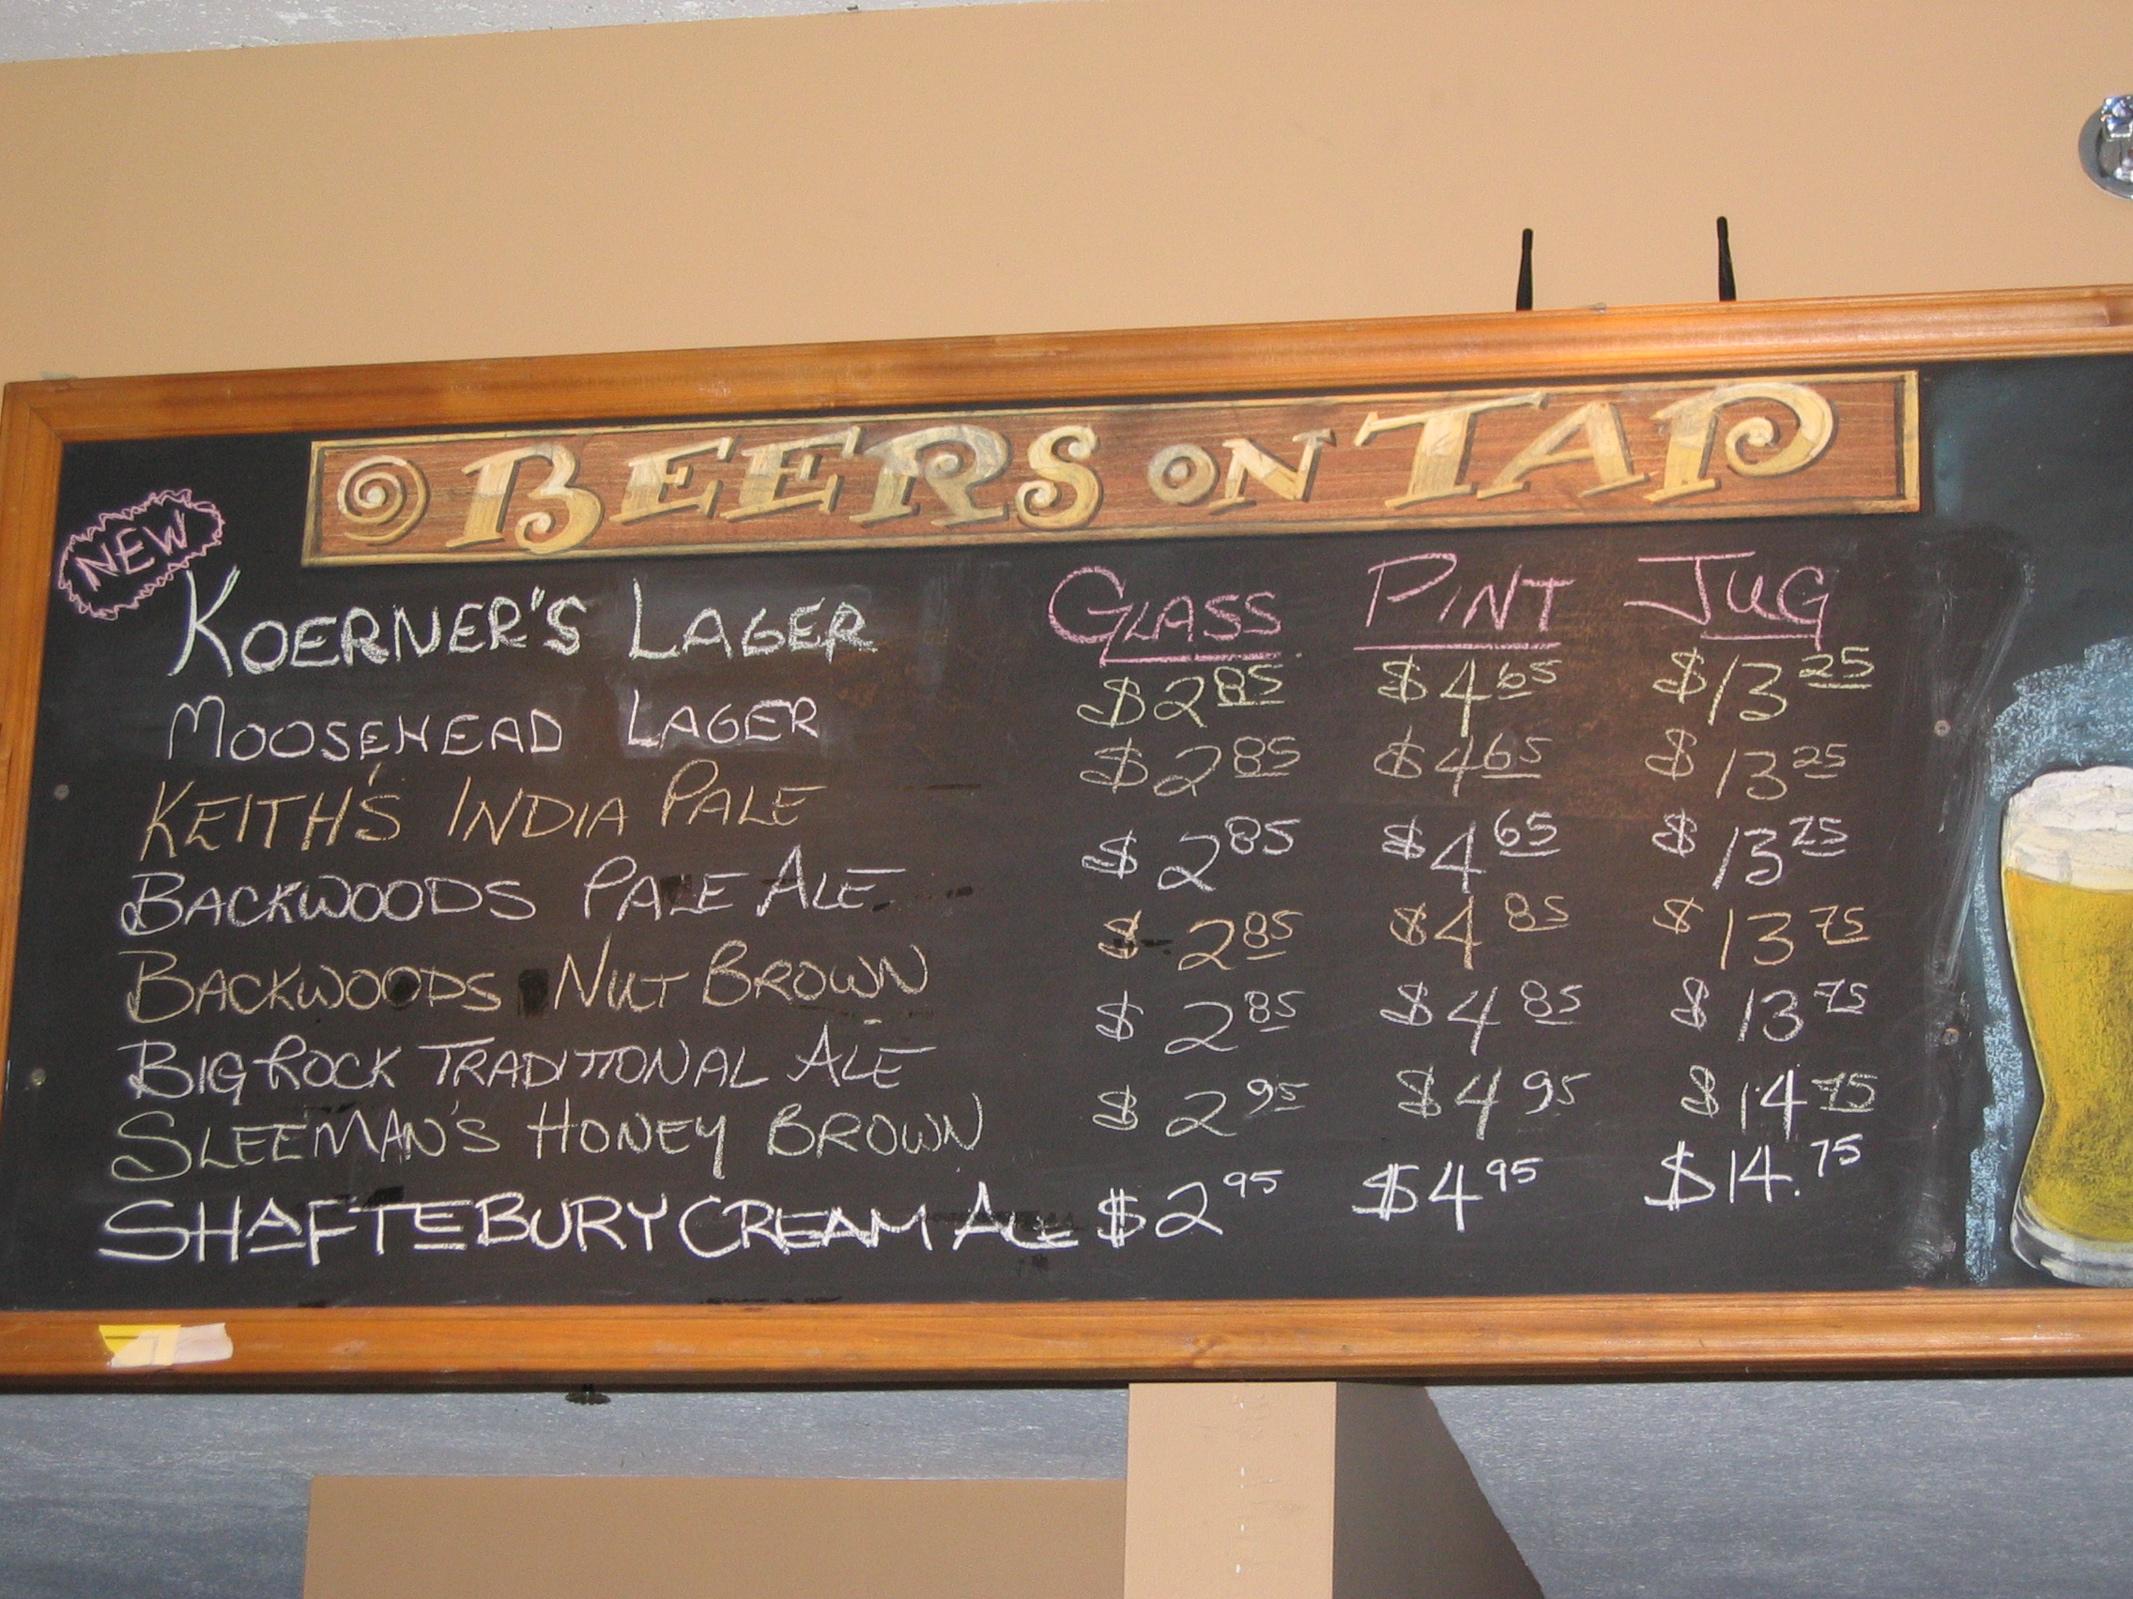 BEERS ON TAP
NEW
KOERNER'S LAGER GLASS PINT JUG
MOOSEHEAD LAGER $2 85 $4 65 $13 25
KEITH'S INDIA PALE $2 85 $4 65 $13 25
BACKWOODS PALE ALE $2 85 $4 65 $13 25
BACKWOODS NUT BROWN $2 85 $4 85 $13 75
BIG ROCK TRADITIONAL ALE $2 85 $4 85 $13 75
SLEEMAN'S HONEY BROWN $2 95 $4 95 $14 75
SHAFTEBURY CREAM ALE $2 95 $4 95 $14.75